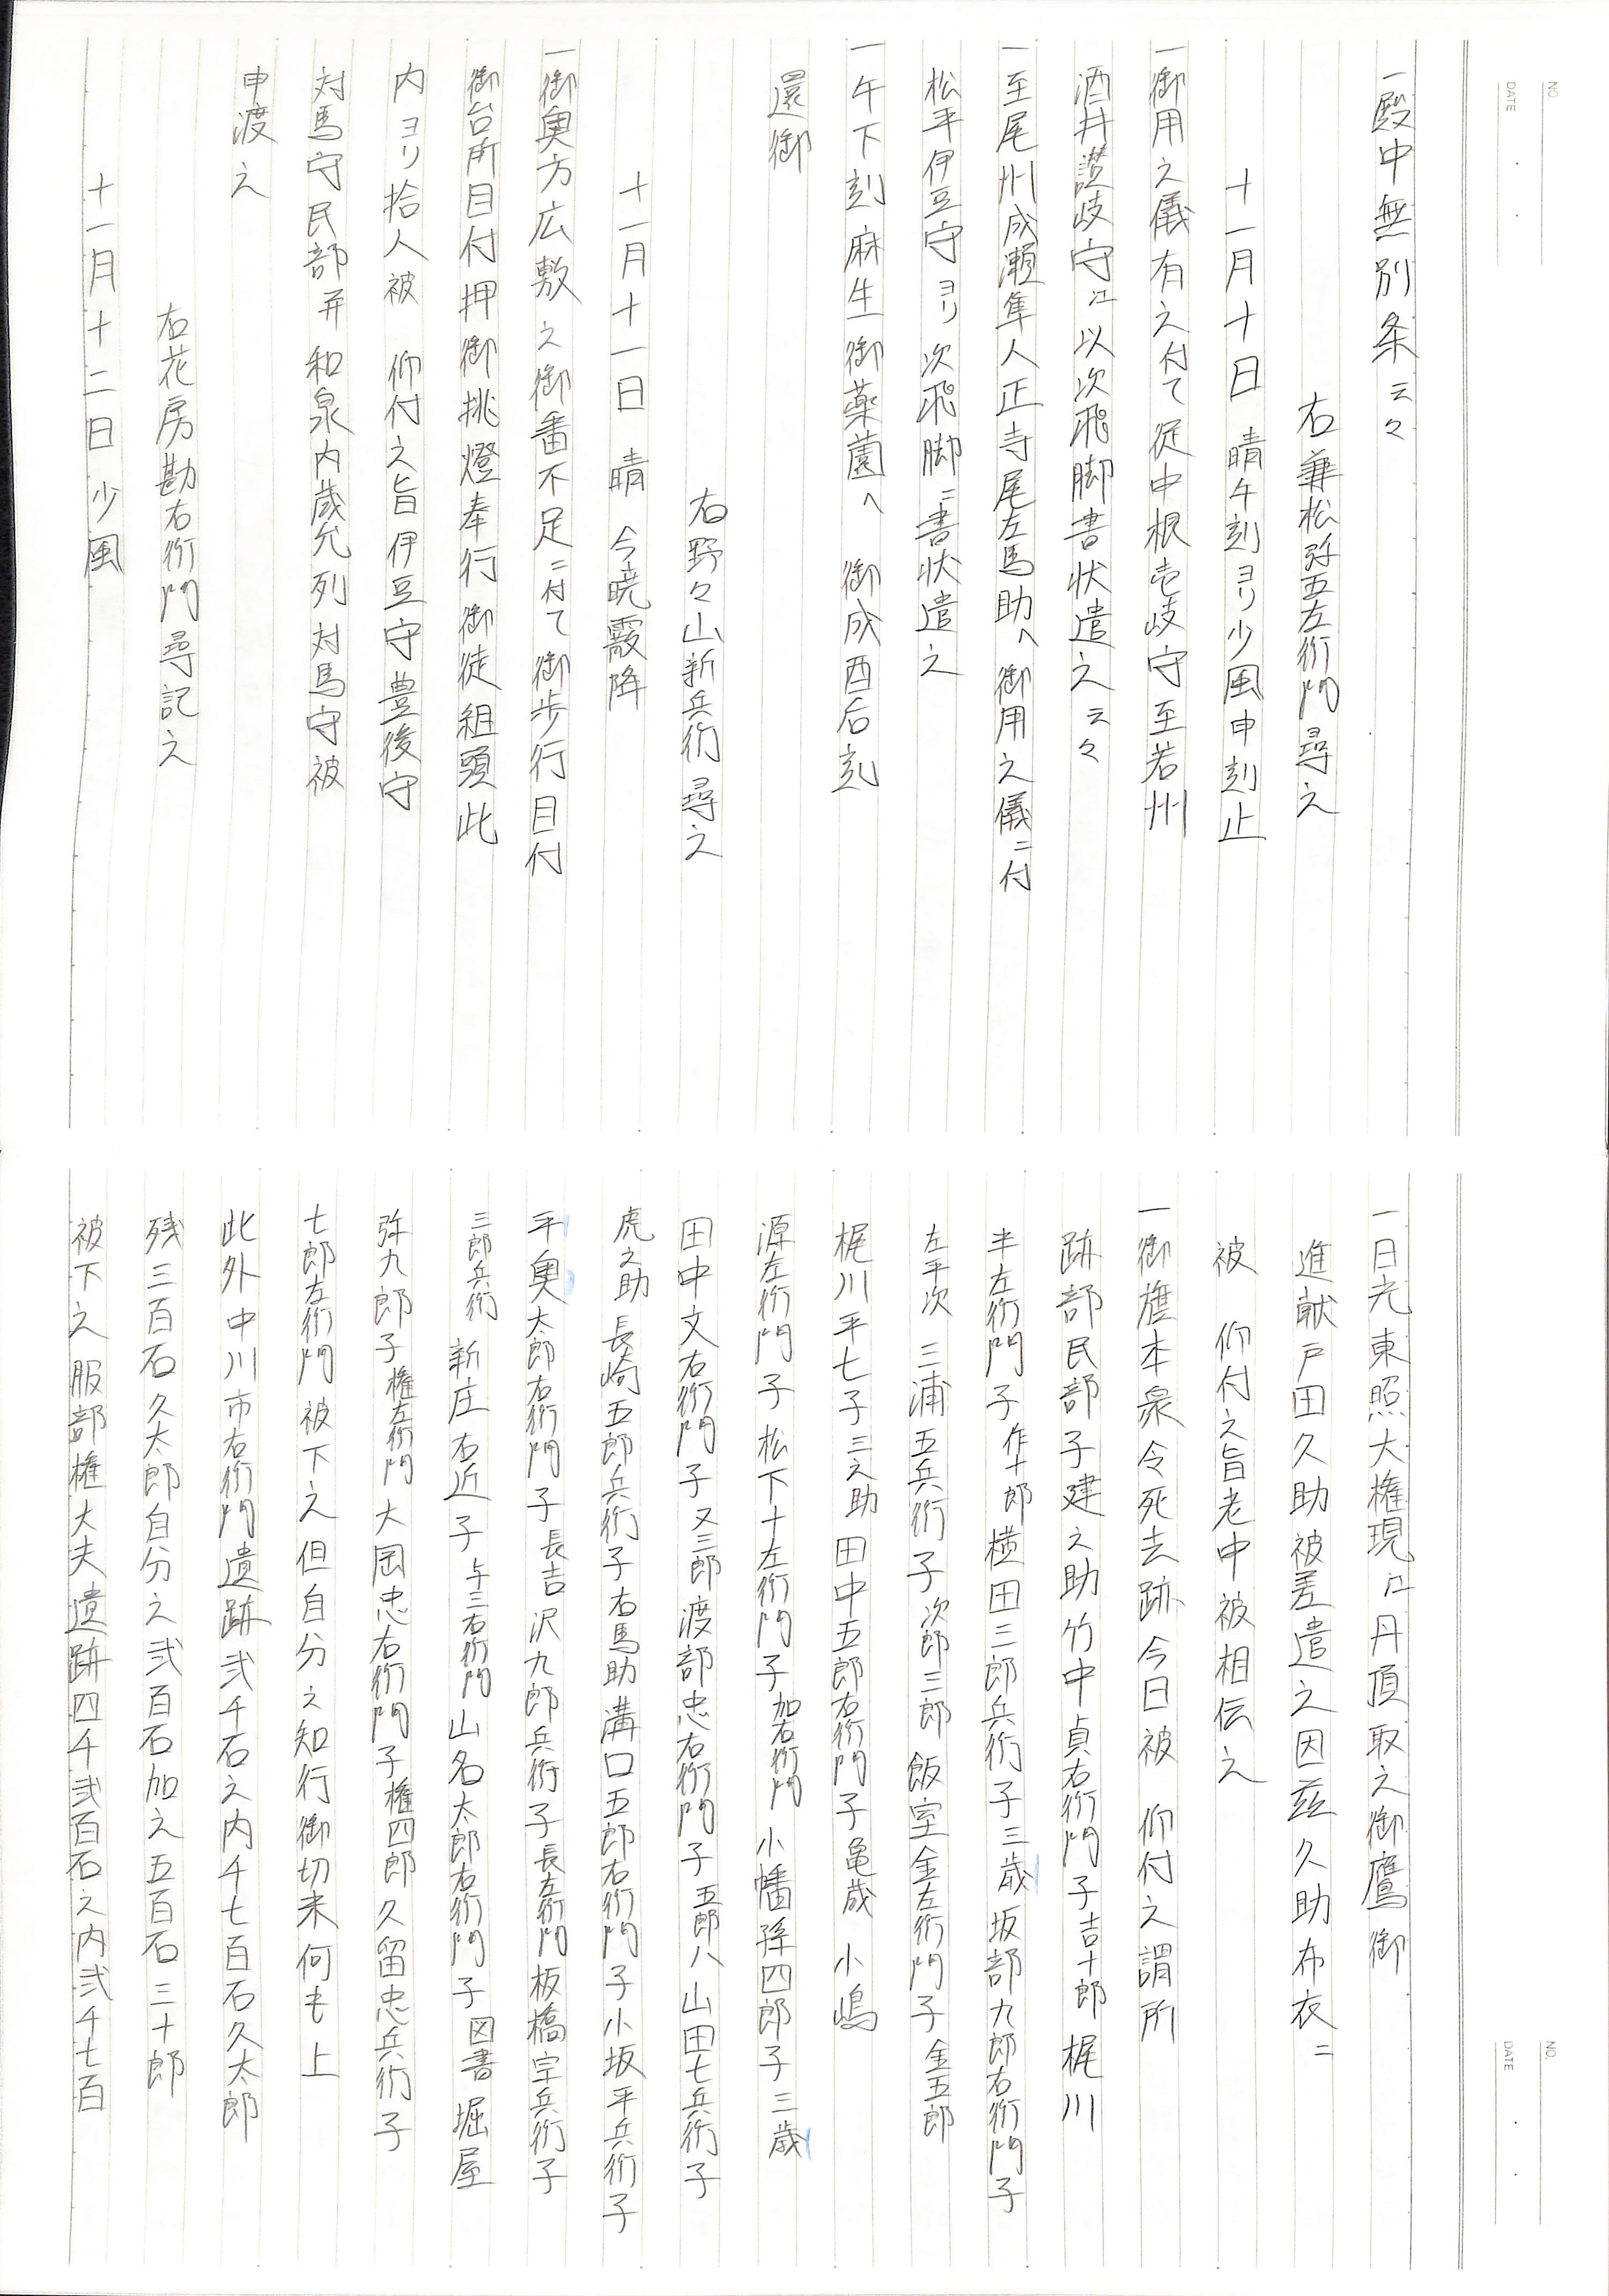 NO.
DATE
一殿中無別条云々
右兼松弥五左衛門尋之
十一月十日 晴午刻ヨリ少風申刻止
一御用之儀有之付て従中根壱岐守至若州
酒井讃岐守江以次飛脚書状遣之云々
一至尾州成瀬隼人正寺尾左馬助へ御用之儀ニ付
松平伊豆守ヨリ次飛脚ニ書状遣之
一午下刻麻生御薬園へ 御成酉后刻
還御
右野々山新兵衛尋之
十一月十一日 晴 今暁霰降
一御奥方広敷之御番不足ニ付て御歩行目付
御台所目付押御挑燈奉行御徒組頭此
内ヨリ拾人被 仰付之旨伊豆守豊後守
対馬守民部并和泉内蔵允列対馬守被
申渡之
右花房勘右衛門尋記之
十一月十二日 少風
NO.
DATE
一日光東照大権現江丹頂取之御鷹御
進献戸田久助被差遣之因茲久助布衣ニ
被 仰付之旨老中被相伝之
一御旗本衆令死去跡今日被 仰付之謂所
跡部民部子建之助竹中貞右衛門子吉十郎梶川
半左衛門子作十郎横田三郎兵衛子三歳坂部九郎右衛門子
左平次 三浦五兵衛子次郎三郎 飯室金左衛門子金五郎
梶川平七子三之助 田中五郎右衛門子亀歳 小嶋
源左衛門子松下十左衛門子加右衛門 小幡孫四郎子三歳
田中文右衛門子又三郎 渡部忠右衛門子五郎八 山田七兵衛子
虎之助 長崎五郎兵衛子右馬助溝口五郎右衛門子小坂平兵衛子
平奥太郎右衛門子長吉 沢九郎兵衛子長左衛門 板橋宇兵衛子
三郎兵衛 新庄右近子与三右衛門 山名太郎右衛門子図書 堀屋
弥九郎子権左衛門 大岡忠右衛門子権四郎 久留忠兵衛子
七郎左衛門被下之但自分之知行御切米何も上
此外中川市右衛門遺跡弐千石之内千七百石久太郎
残三百石久太郎自分之弐百石加之五百石三十郎
被下之服部権大夫遺跡四千弐百石之内弐千七百